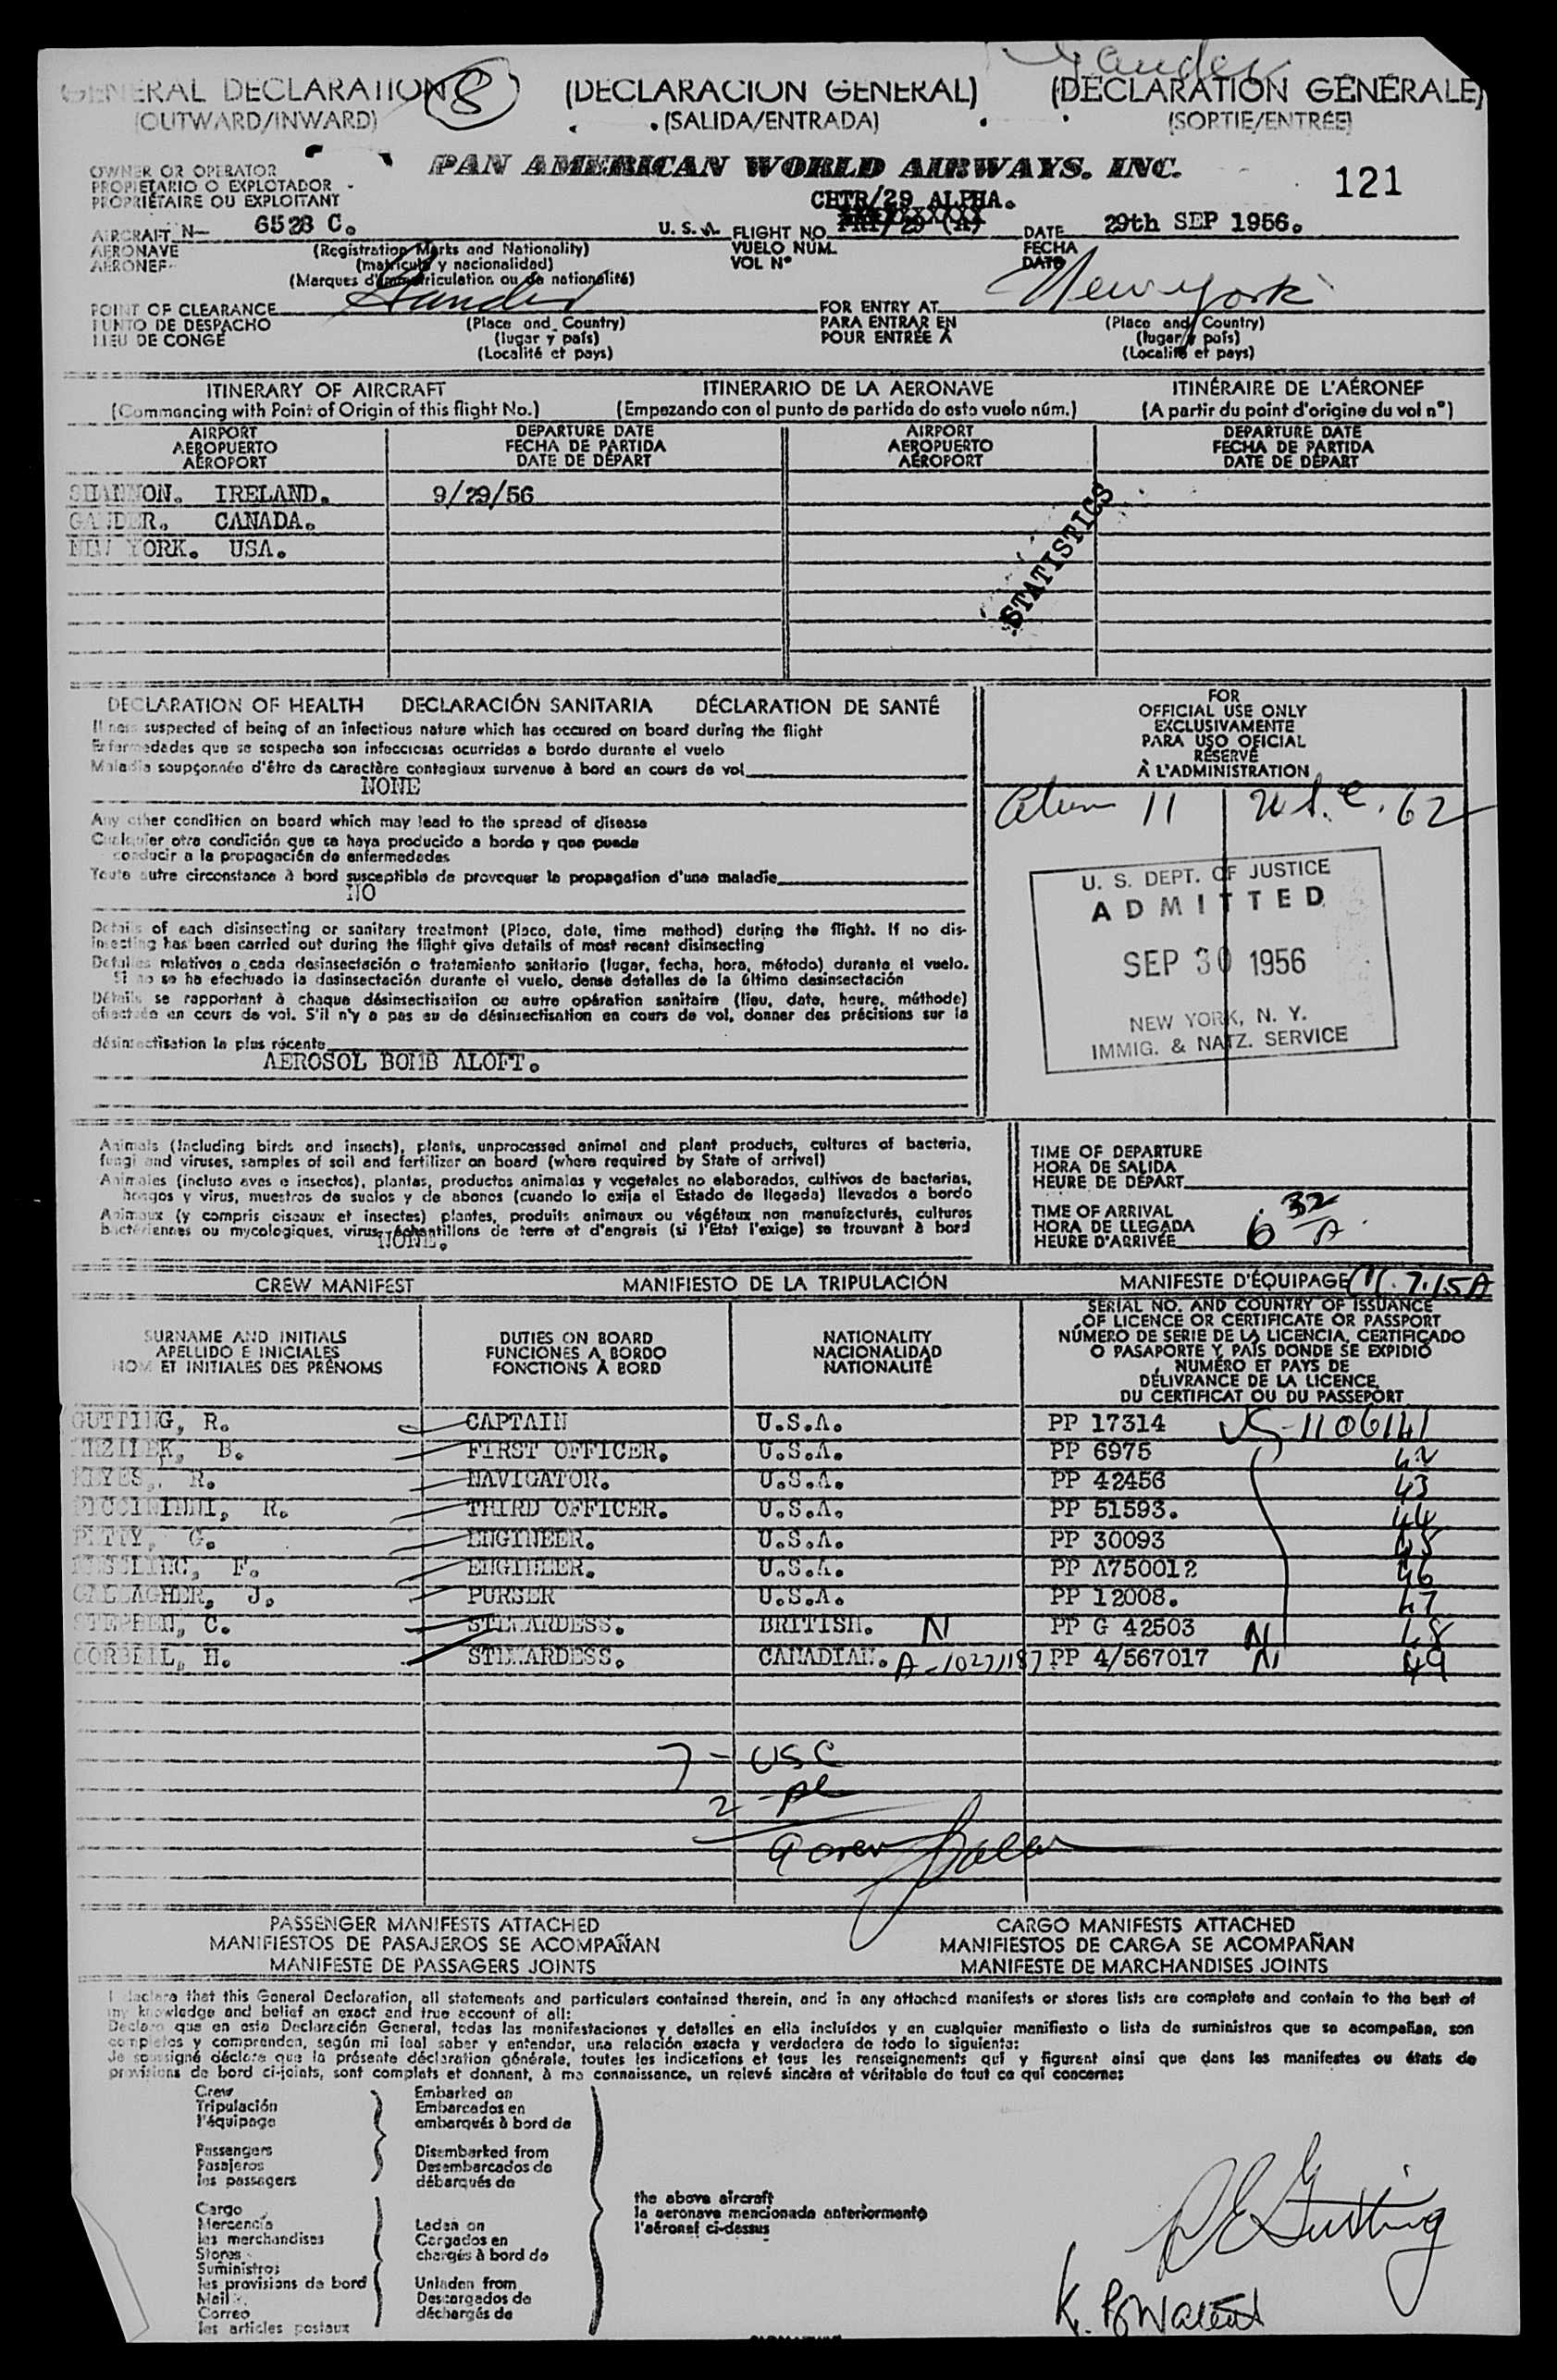 Gander
GENERAL DECLARATION 8 (DECLARACION GENERAL) (DÉCLARATION GÉNÉRALE)
(OUTWARD/INWARD) (SALIDA/ENTRADA) (SORTIE/ENTRÉE)
OWNER OR OPERATOR
PROPIETARIO O EXPLOTADOR
PROPRIÉTAIRE OU EXPLOITANT
PAN AMERICAN WORLD AIRWAYS. INC. 121
CHTR/29 ALPHA.
AIRCRAFT N— 6528 C. U. S. A. FLIGHT NO. DATE 29th SEP 1956.
AERONAVE (Registration Marks and Nationality) VUELO NÚM. FECHA
AÉRONEF (matrícula y nacionalidad) VOL N° DATE
(Marques d'immatriculation ou de nationalité)
POINT OF CLEARANCE Gander FOR ENTRY AT New York
PUNTO DE DESPACHO (Place and Country) PARA ENTRAR EN (Place and Country)
LIEU DE CONGÉ (lugar y país) POUR ENTRÉE À (lugar y país)
(Localité et pays) (Localité et pays)
ITINERARY OF AIRCRAFT ITINERARIO DE LA AERONAVE ITINÉRAIRE DE L'AÉRONEF
(Commencing with Point of Origin of this flight No.) (Empezando con el punto de partida de esta vuelo núm.) (A partir du point d'origine du vol n°)
AIRPORT DEPARTURE DATE AIRPORT DEPARTURE DATE
AEROPUERTO FECHA DE PARTIDA AEROPUERTO FECHA DE PARTIDA
AÉROPORT DATE DE DÉPART AÉROPORT DATE DE DÉPART
SHANNON. IRELAND. 9/29/56
GANDER. CANADA.
NEW YORK. USA.
STATISTICS
DECLARATION OF HEALTH DECLARACIÓN SANITARIA DÉCLARATION DE SANTÉ
Illness suspected of being of an infectious nature which has occured on board during the flight
Enfermedades que se sospecha son infecciosas ocurridas a bordo durante el vuelo
Maladie soupçonnée d'être de caractère contagieux survenue à bord en cours de vol
NONE
Any other condition on board which may lead to the spread of disease
Cualquier otra condición que se haya producido a bordo y que puede
conducir a la propagación de enfermedades
Toute autre circonstance à bord susceptible de provoquer la propagation d'une maladie
NO
Details of each disinsecting or sanitary treatment (Place, date, time method) during the flight. If no dis-
insecting has been carried out during the flight give details of most recent disinsecting
Detalles relativos a cada desinsectación o tratamiento sanitario (lugar, fecha, hora, método) durante el vuelo.
Si no se ha efectuado la desinsectación durante el vuelo, dense detalles de la última desinsectación
Détails se rapportant à chaque désinsectisation ou autre opération sanitaire (lieu, date, heure, méthode)
effectuée en cours de vol. S'il n'y a pas eu de désinsectisation en cours de vol, donner des précisions sur la
désinsectisation la plus récente
AEROSOL BOMB ALOFT.
FOR
OFFICIAL USE ONLY
EXCLUSIVAMENTE
PARA USO OFICIAL
RÉSERVÉ
À L'ADMINISTRATION
Alien 11 U.S.C. 62
U. S. DEPT. OF JUSTICE
ADMITTED
SEP 30 1956
NEW YORK, N. Y.
IMMIG. & NATZ. SERVICE
Animals (Including birds and insects), plants, unprocessed animal and plant products, cultures of bacteria,
fungi and viruses, samples of soil and fertilizer on board (where required by State of arrival)
Animales (incluso aves e insectos), plantas, productos animales y vegetales no elaborados, cultivos de bacterias,
hongos y virus, muestras de suelos y de abonos (cuando lo exija el Estado de llegada) llevados a bordo
Animaux (y compris oiseaux et insectes) plantes, produits animaux ou végétaux non manufacturés, cultures
bactériennes ou mycologiques, virus, échantillons de terre et d'engrais (si l'Etat l'exige) se trouvant à bord
NONE.
TIME OF DEPARTURE
HORA DE SALIDA
HEURE DE DÉPART
TIME OF ARRIVAL
HORA DE LLEGADA 6 32 A
HEURE D'ARRIVÉE
CREW MANIFEST MANIFIESTO DE LA TRIPULACIÓN MANIFESTE D'ÉQUIPAGE 7.15A
SURNAME AND INITIALS DUTIES ON BOARD NATIONALITY
APELLIDO E INICIALES FUNCIONES A BORDO NACIONALIDAD
NOM ET INITIALES DES PRÉNOMS FONCTIONS À BORD NATIONALITÉ
SERIAL NO. AND COUNTRY OF ISSUANCE
OF LICENCE OR CERTIFICATE OR PASSPORT
NÚMERO DE SERIE DE LA LICENCIA, CERTIFICADO
O PASAPORTE Y PAÍS DONDE SE EXPIDIÓ
NUMÉRO ET PAYS DE
DÉLIVRANCE DE LA LICENCE,
DU CERTIFICAT OU DU PASSEPORT
GUTTING, R. CAPTAIN U.S.A. PP 17314 US-1106141
B. FIRST OFFICER. U.S.A. PP 6975 42
R. NAVIGATOR. U.S.A. PP 42456 43
R. THIRD OFFICER. U.S.A. PP 51593. 44
PETTY, G. ENGINEER. U.S.A. PP 30093 45
F. ENGINEER. U.S.A. PP A750012 46
GALLAGHER, J. PURSER U.S.A. PP 12008. 47
STEPHEN, C. STEWARDESS. BRITISH. N PP G 42503 N 48
CORBEIL, H. STEWARDESS. CANADIAN. A-10271187 PP 4/567017 N 49
7 - USC
2 - al
PASSENGER MANIFESTS ATTACHED CARGO MANIFESTS ATTACHED
MANIFIESTOS DE PASAJEROS SE ACOMPAÑAN MANIFIESTOS DE CARGA SE ACOMPAÑAN
MANIFESTE DE PASSAGERS JOINTS MANIFESTE DE MARCHANDISES JOINTS
I declare that this General Declaration, all statements and particulars contained therein, and in any attached manifests or stores lists are complete and contain to the best of
my knowledge and belief an exact and true account of all:
Declaro que en esta Declaración General, todas las manifestaciones y detalles en ella incluídos y en cualquier manifiesto o lista de suministros que se acompañan, son
completos y comprenden, según mi leal saber y entender, una relación exacta y verdadera de todo lo siguiente:
Je soussigné déclare que la présente déclaration générale, toutes les indications et tous les renseignements qui y figurent ainsi que dans les manifestes ou états de
provisions de bord ci-joints, sont complets et donnent, à ma connaissance, un relevé sincère et véritable de tout ce qui concerne:
Crew Embarked on
Tripulación Embarcados en
l'équipage embarqués à bord de
Passengers Disembarked from
Pasajeros Desembarcados de
les passagers débarqués de
the above aircraft
la aeronave mencionada anteriormente
l'aéronef ci-dessus
Cargo
Mercancía Laden on
les merchandises Cargados en
Stores chargés à bord de
Suministros
les provisions de bord Unladen from
Mail Descargados de
Correo déchargés de
les articles postaux
R E Gutting